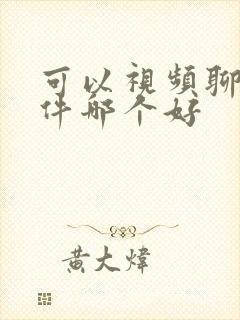 可以視頻聊
件哪个好
黄大煒